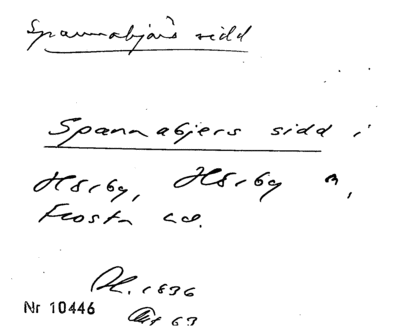 Spannabjärs sidd
Spannabjers sidd i
Hörby, Hörby sn,
Frosta hd.
Ak. 1836
Nr 10446
Akt 63